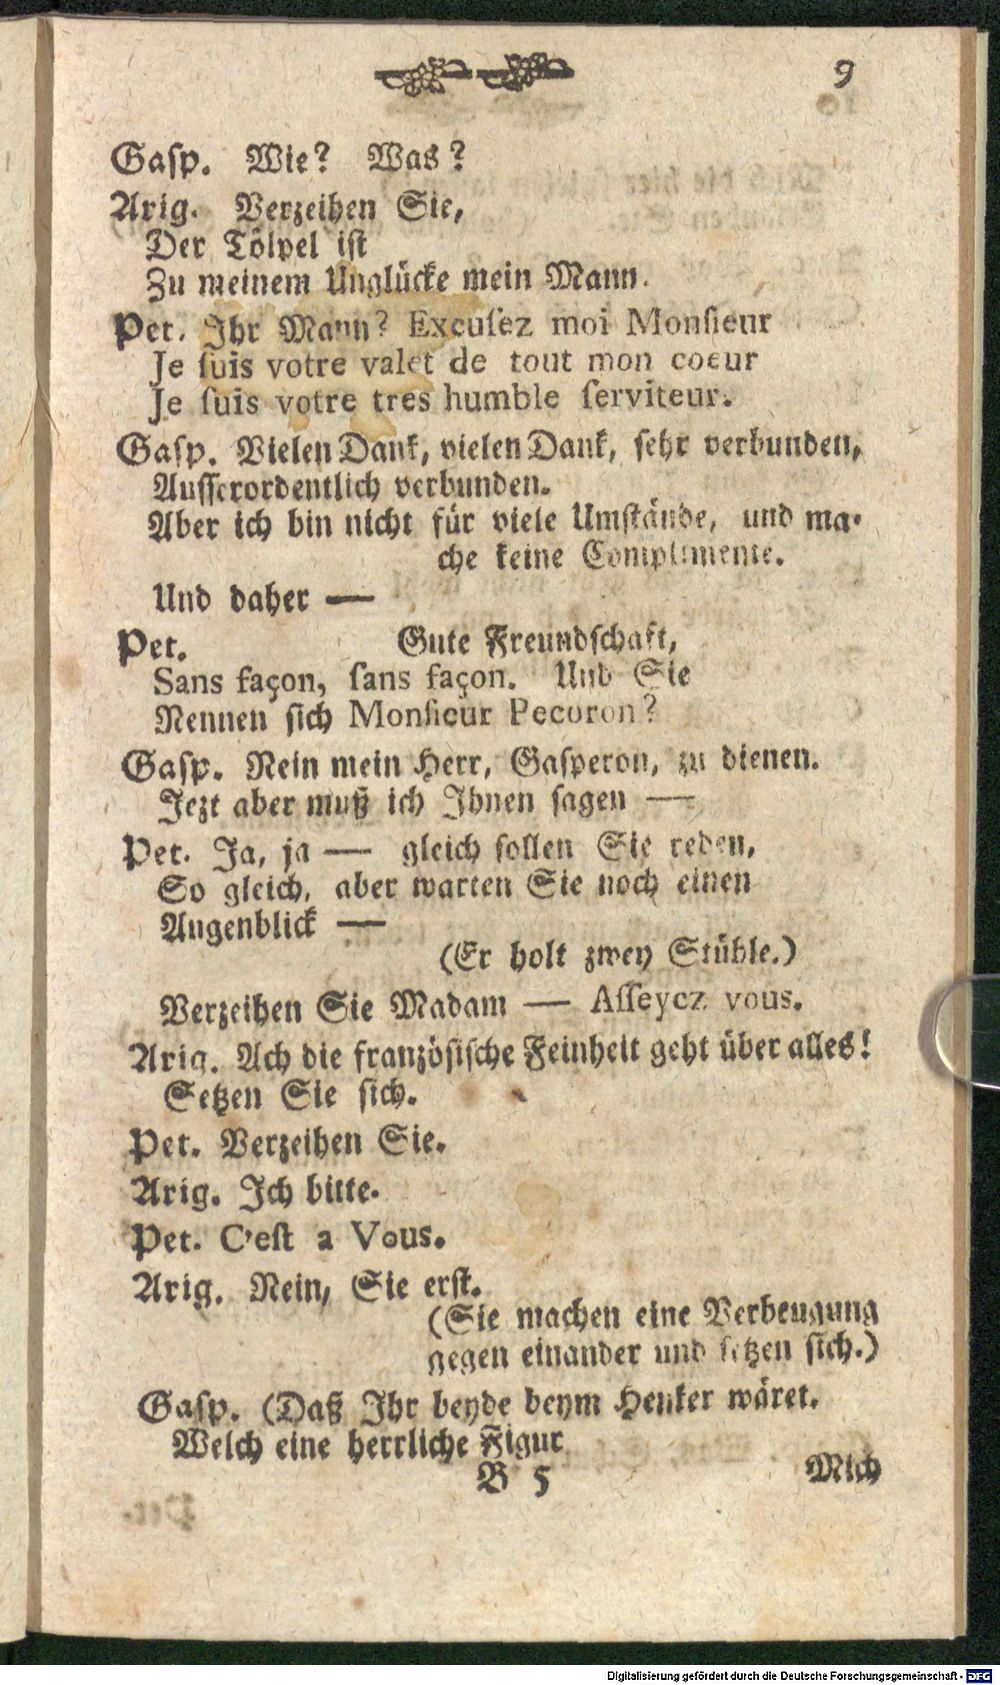 9
Gasp. Wie? Was?
Arig. Verzeihen Sie,
Der Tölpel ist
Zu meinem Unglücke mein Mann.
Pet. Ihr Mann? Excuſez moi Monſieur
Je ſuis votre valet de tout mon coeur
Je ſuis votre tres humble ſerviteur.
Gasp. Vielen Dank, vielen Dank, sehr verbunden,
Ausserordentlich verbunden.
Aber ich bin nicht für viele Umstände, und ma-
che keine Complimente.
Und daher —
Pet. Gute Freundschaft,
Sans façon, ſans façon. Und Sie
Nennen sich Monſieur Pecoron?
Gasp. Nein mein Herr, Gasperon, zu dienen.
Jezt aber muß ich Ihnen sagen —
Pet. Ja, ja — gleich sollen Sie reden,
So gleich, aber warten Sie noch einen
Augenblick —
(Er holt zwey Stühle.)
Verzeihen Sie Madam — Aſſeyez vous.
Arig. Ach die französische Feinheit geht über alles!
Setzen Sie sich.
Pet. Verzeihen Sie.
Arig. Ich bitte.
Pet. C'eſt a Vous.
Arig. Nein, Sie erst.
(Sie machen eine Verbeugung
gegen einander und setzen sich.)
Gasp. (Daß Ihr beyde beym Henker wäret.
Welch eine herrliche Figur
B 5 Mich
Digitalisierung gefördert durch die Deutsche Forschungsgemeinschaft - DFG